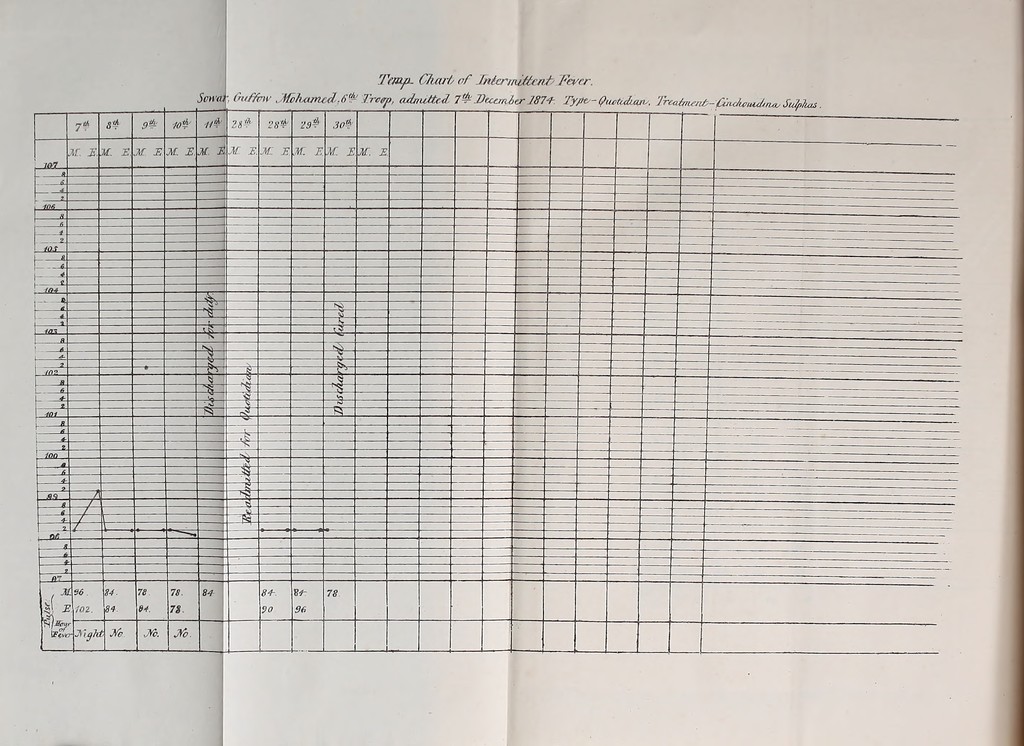 Temp. Chart of Intermittent Fever.
Sowar, Guffow Mohamed, 6th Troop, admitted 7th December 1874. Type-Quotidian. Treatment-Cinchonidina Sulphas.
7th 8th 9th 10th 11th 28th 28th 29th 30th
M. E. M. E. M. E. M. E. M. E. M. E. M. E. M. E. M. E. M. E.
107
8
6
4
2
106
8
6
4
2
105
8
6
4
2
104
8
6
4
2
103
8
6
4
2
102
8
6
4
2
101
8
6
4
2
100
8
6
4
2
99
8
6
4
2
98
8
6
4
2
97
Discharged for duty.
Readmitted for Quotidian
Discharged Cured
Pulse
M. 96. 84. 78. 78. 84 84. 84 78.
E. 102. 84 84. 78. 90 96
Hour of Fever Night No. No. No